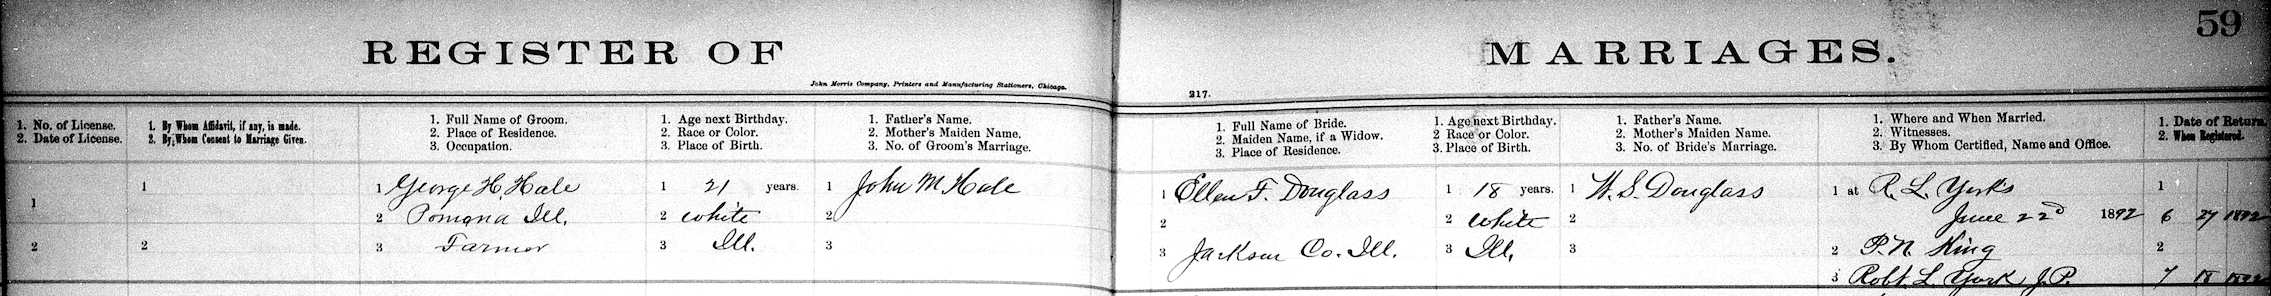 59
REGISTER OF MARRIAGES.
John Morris Company, Printers and Manufacturing Stationers, Chicago.
217.
1. No. of License.
2. Date of License.
1. By Whom Affidavit, if any, is made.
2. By Whom Consent to Marriage Given.
1. Full Name of Groom.
2. Place of Residence.
3. Occupation.
1. Age next Birthday.
2. Race or Color.
3. Place of Birth.
1. Father's Name.
2. Mother's Maiden Name.
3. No. of Groom's Marriage.
1. Full Name of Bride.
2. Maiden Name, if a Widow.
3. Place of Residence.
1. Age next Birthday.
2 Race or Color.
3. Place of Birth.
1. Father's Name.
2. Mother's Maiden Name.
3. No. of Bride's Marriage.
1. Where and When Married.
2. Witnesses.
3. By Whom Certified, Name and Office.
1. Date of Return.
2. When Registered.
1
2
1
2
1 George H. Hale
2 Pomona Ill.
3 Farmer
1 21 years.
2 White
3 Ill.
1 John M Hale
2
3
1 Ellen F. Douglass
2
3 Jackson Co. Ill.
1 18 years.
2 White
3 Ill.
1 W. S. Douglass
2
3
1 at R. L. York's
June 22d 1892
2 P. N. King
3 Robt. L. York J.P.
1
6 27 1892
2
7 18 1892